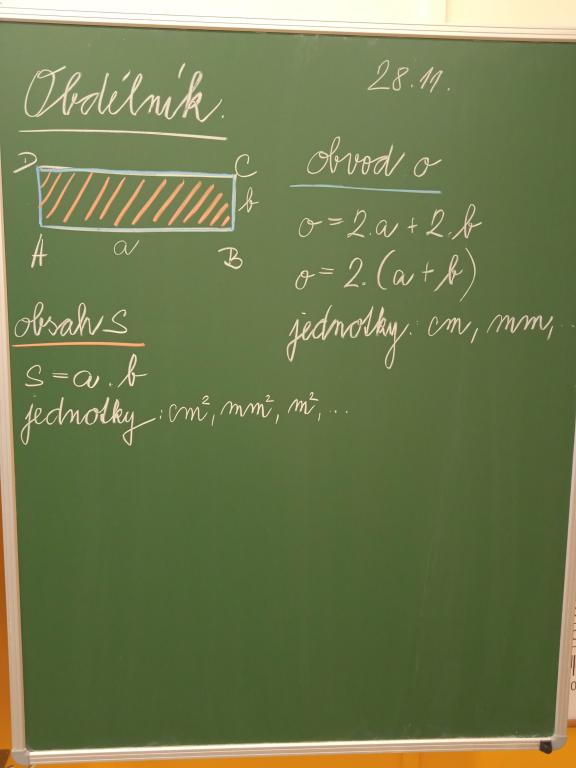 Obdélník.
28.11.
D
C
b
A
a
B
obvod o
o = 2.a + 2.b
o = 2.(a + b)
jednotky: cm, mm, ..
obsah S
S = a . b
jednotky: cm², mm², m², ...